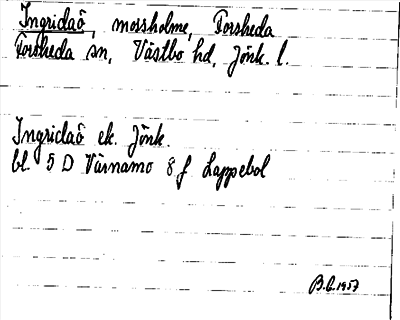 Ingridaö, mossholme, Forsheda
Forsheda sn, Västbo hd, Jönk. l.
Ingridaö ek. Jönk.
bl. 5 D Värnamo 8 f Lappebol
B.C. 1957